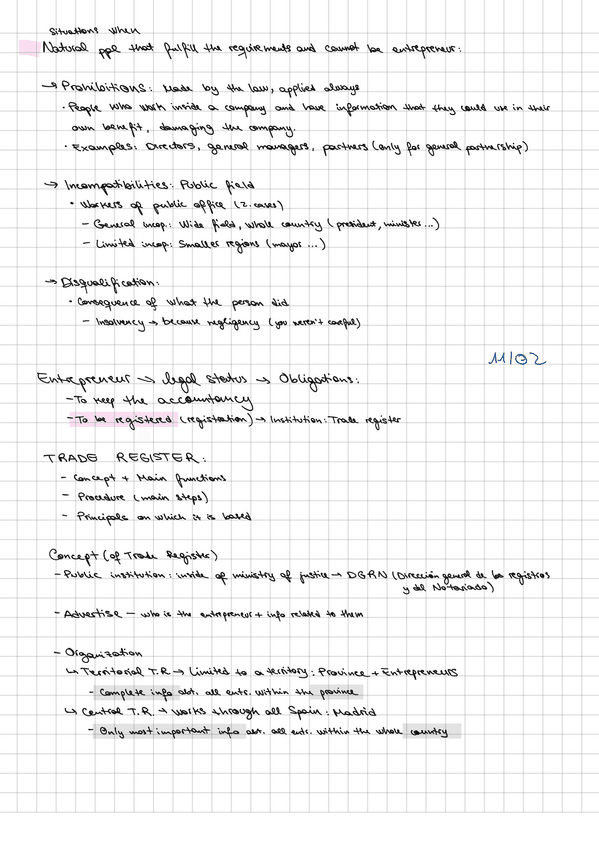 Situations when
Natural ppl that fulfill the requirements and cannot be entrepreneur:
→ Prohibitions: Made by the law, applied always
· People who work inside a company and have information that they could use in their
own benefit, damaging the company.
· Examples: Directors, general managers, partners (only for general partnership)
→ Incompatibilities: Public field
· Workers of public office (2 cases)
- General incop: Wide field, whole country (president, minister...)
- Limited incop: Smaller regions (mayor ...)
→ Disqualification:
· Consequence of what the person did
- Insolvency → because negligency (you weren't careful)
11/02
Entrepreneur → legal status → Obligations:
- To keep the accountancy
- To be registered (registration) → Institution: Trade register
TRADE REGISTER:
- Concept + Main functions
- Procedure (main steps)
- Principals on which it is based
Concept (of Trade Register)
- Public institution: inside of ministry of justice → DGRN (Dirección general de los registros
y del Notariado)
- Advertise — who is the entrepreneur + info related to them
- Organization
↳ Territorial T.R → Limited to a territory: Province + Entrepreneurs
- Complete info abt. all entr. within the province
↳ Central T.R. → works through all Spain: Madrid
- Only most important info abt. all entr. within the whole country